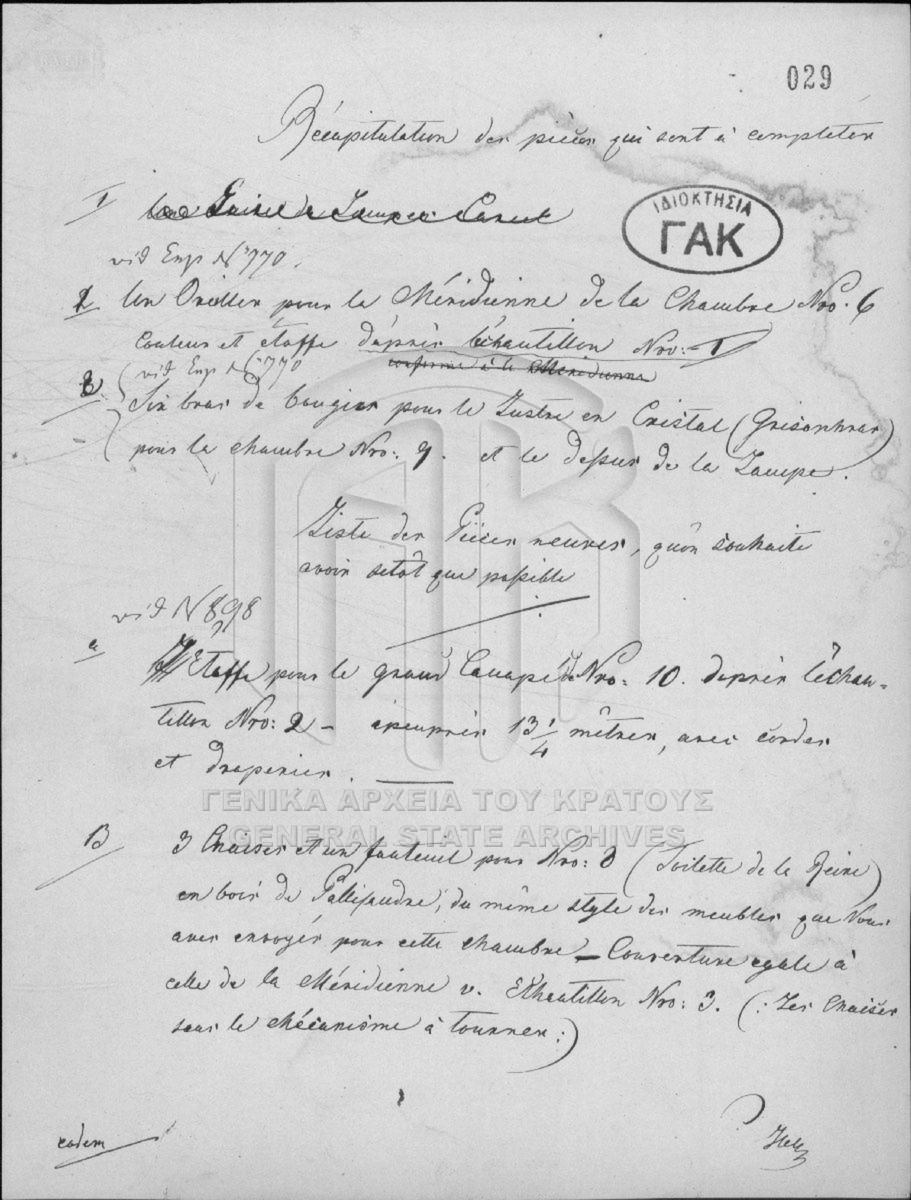 029
Récapitulation des pièces qui sont à completer
I
ΙΔΙΟΚΤΗΣΙΑ
ΓΑΚ
vid Exp N 770.
2 Un Oreiller pour la Méridienne de la Chambre Nro. 6
Couleur et etoffe d'après l'échantillon Nro: 1
conforme à la Méridienne
vid Exp N 770
Six bras de bougies pour le Lustre en Cristal
pour la chambre Nro: 9. et le dessus de la Lampe.
Liste des Pièces neuves, qu'on souhaite
avoir sitôt que possible
vid N 898
a
Etoffe pour le grand Canapé Nro: 10. d'après l'échan-
tillon Nro: 2 – àpeuprès 13 1/4 mêtres, avec cordes
et draperies.
ΓΕΝΙΚΑ ΑΡΧΕΙΑ ΤΟΥ ΚΡΑΤΟΥΣ
GENERAL STATE ARCHIVES
B 3 Chaises et un fauteuil pour Nro: 8 (Toilette de la Reine)
en bois de Pallisandre, du même style des meubles que Vous
avez envoyés pour cette chambre – Couverture egale à
celle de la Méridienne v. Echantillon Nro: 3. (: Les Chaises
sans le mécanisme à tourner :)
eodem